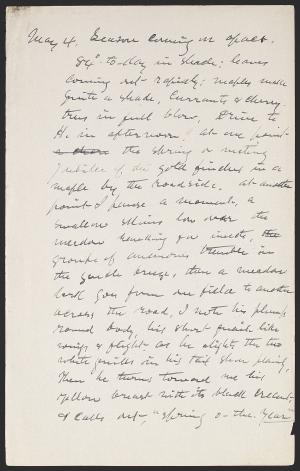 May 4. Season coming on apace.
84° to-day in shade; leaves
coming out rapidly; maples make
quite a shade, Currants & cherry
trees in full bloom, Drive to
H. in afternoon; at one point
the spring or mating
jubilee of the gold finches in a
maple by the roadside. At another
point I pause a moment, a
swallow skims low over the
meadow searching for insects, the
groups of anemones tremble in
the gentle breeze, then a meadow
lark goes from one field to another
across the road, I note his plump
round body, his short quail-like
wings & flight. as he alights the two
white quills in his tail show plainly,
Then he turns toward me his
yellow breast with its black crescent
& calls out, "Spring o-the-Year"